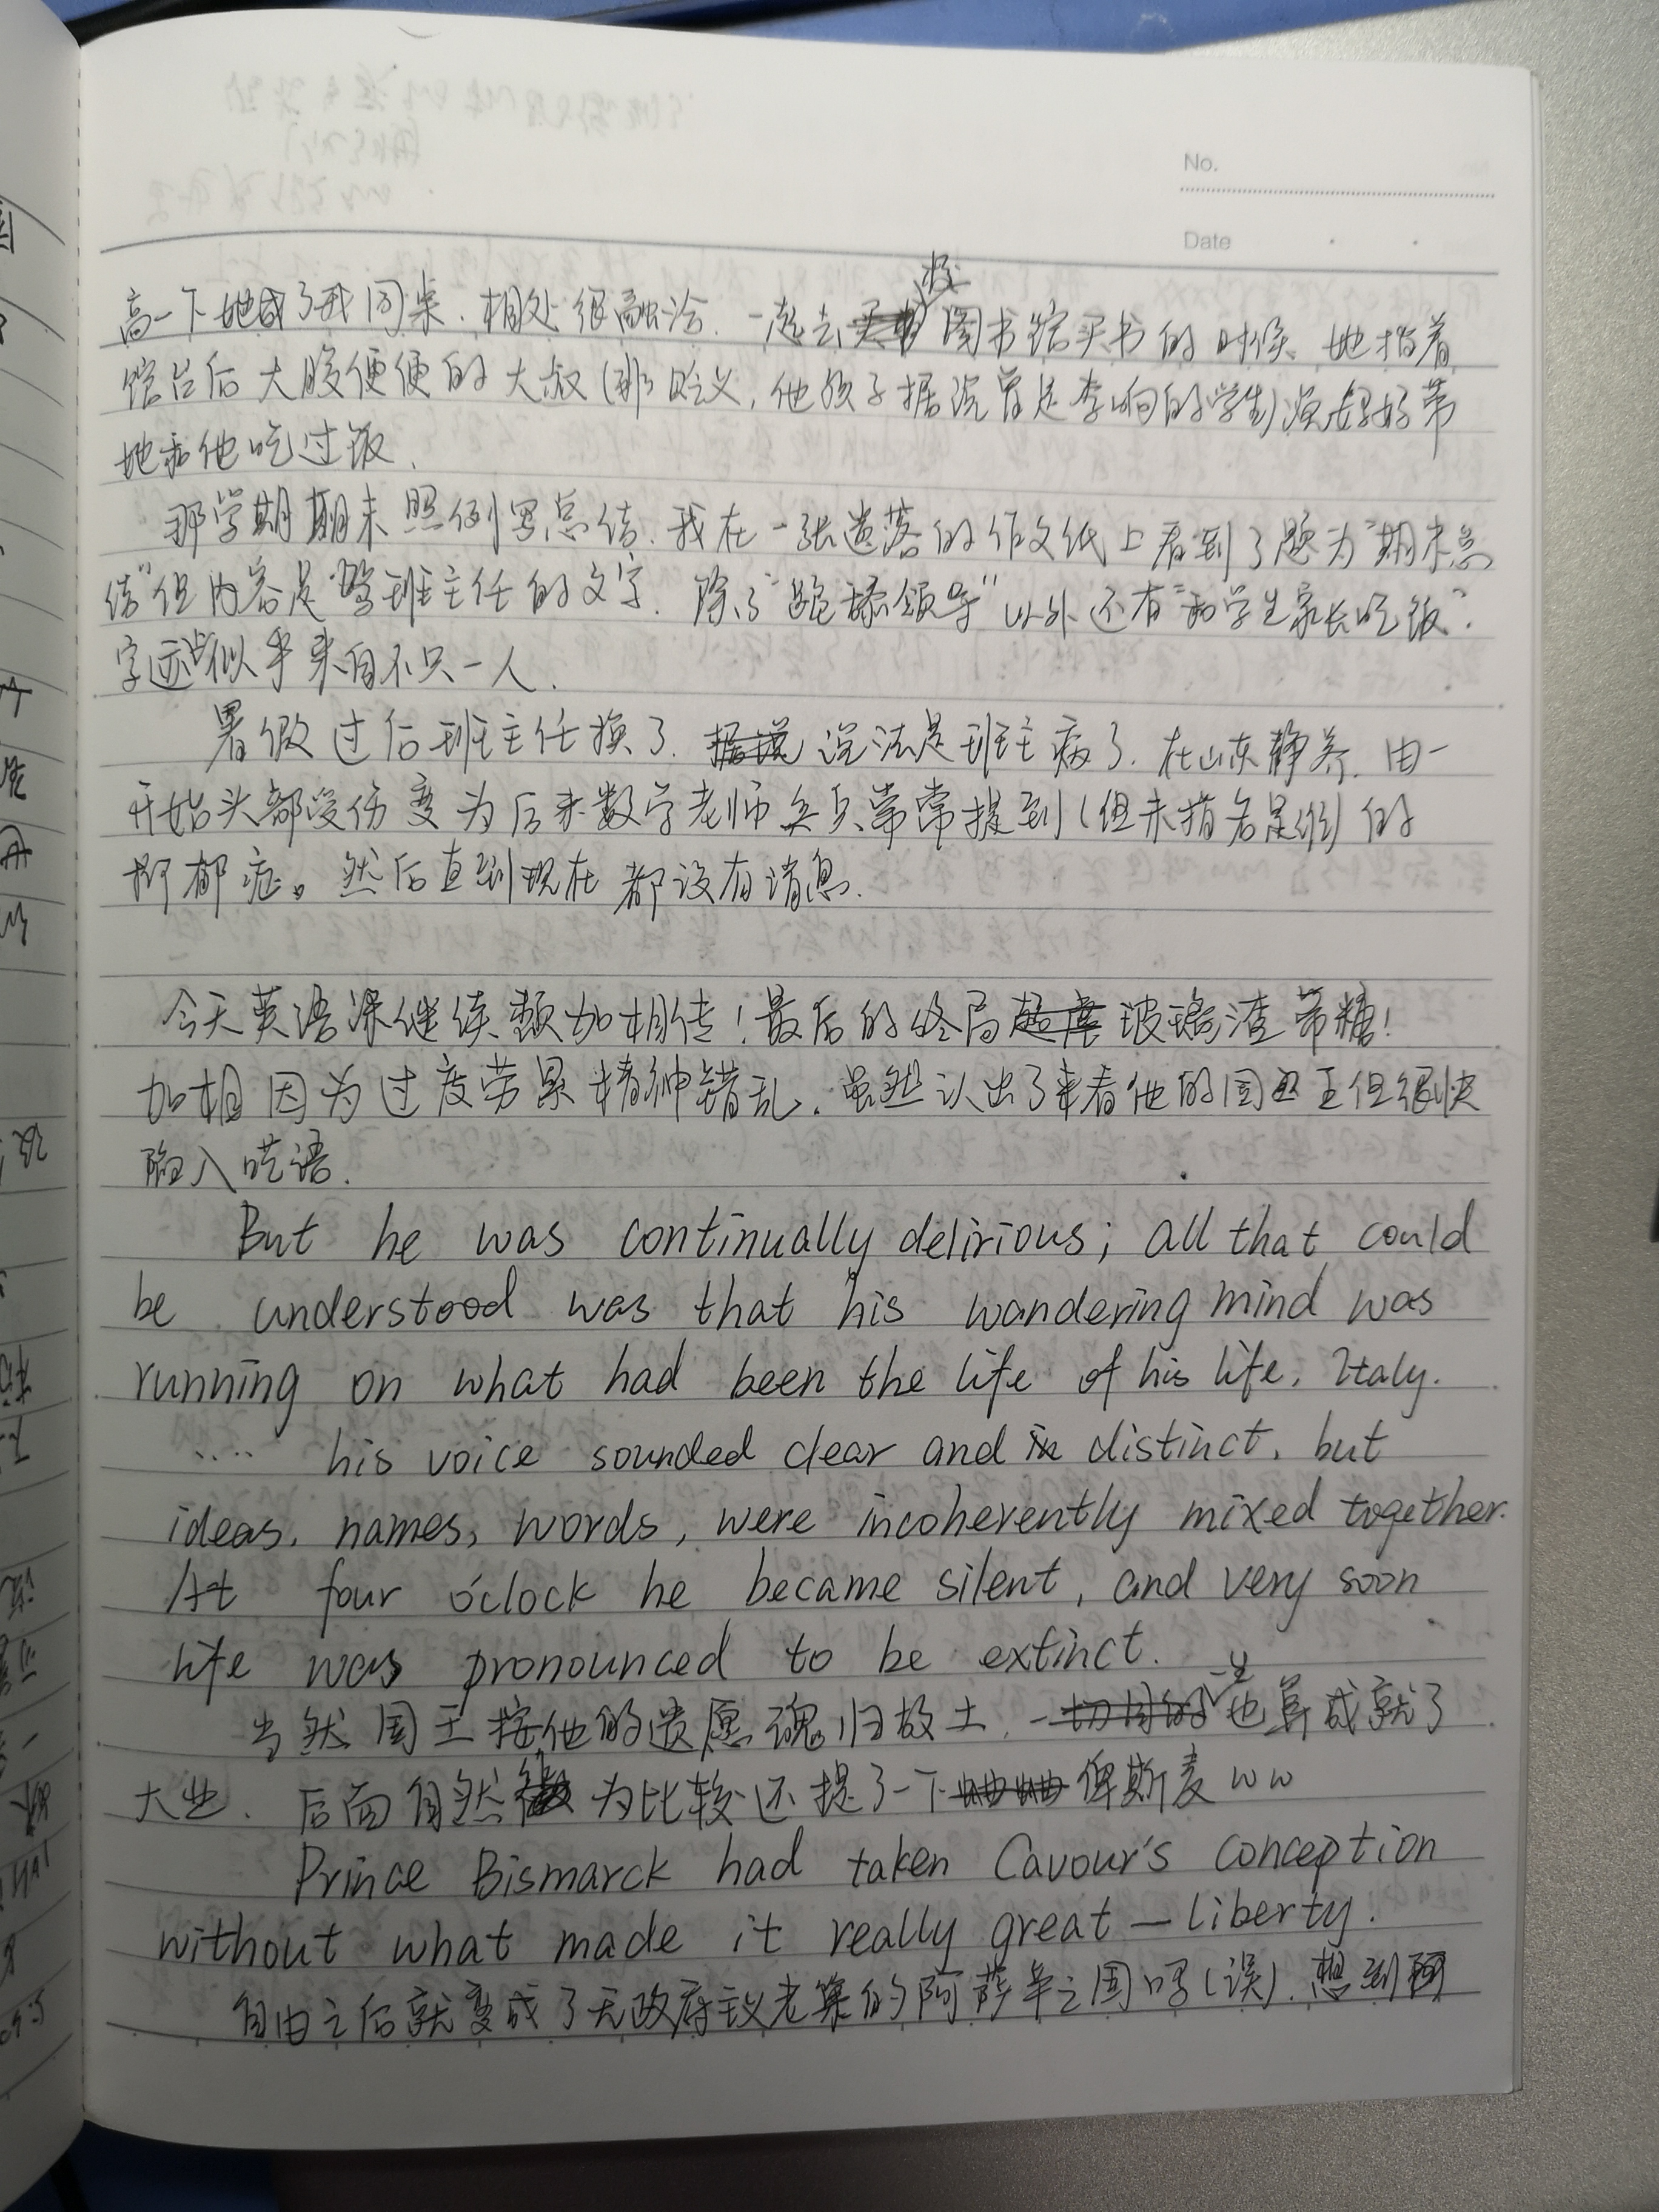 No.
Date
高一下她成了我同桌.相处很融洽.一起去校图书馆买书的时候,她指着
馆台后大腹便便的大叔(非贬义,他孩子据说曾是李响的学生)说妈妈带
她和他吃过饭.
那学期期末照例写总结.我在一张遗落的作文纸上看到了题为"期末总
结"但内容是骂班主任的文字.除了"跪舔领导"以外还有"和学生家长吃饭".
字迹似乎来自不只一人.
暑假过后班主任换了.说法是班主病了.在山东静养.由一
开始头部受伤变为后来数学老师常常提到(但未指名是谁)的
抑郁症。然后直到现在都没有消息.
今天英语课继续颓加相传!最后的终局玻璃渣带糖!
加相因为过度劳累精神错乱.虽然认出了来看他的国王但很快
陷入呓语.
But he was continually delirious; all that could
be understood was that his wandering mind was
running on what had been the life of his life, Italy.
.... his voice sounded clear and distinct, but
ideas, names, words, were incoherently mixed together.
At four o'clock he became silent, and very soon
life was pronounced to be extinct.
当然国王按他的遗愿魂归故土.也算成就了
大业.后面自然为比较还提了一下俾斯麦ww
Prince Bismarck had taken Cavour's conception
without what made it really great — liberty.
自由之后就变成了无政府主义老巢的阿萨辛之国吗(误).想到